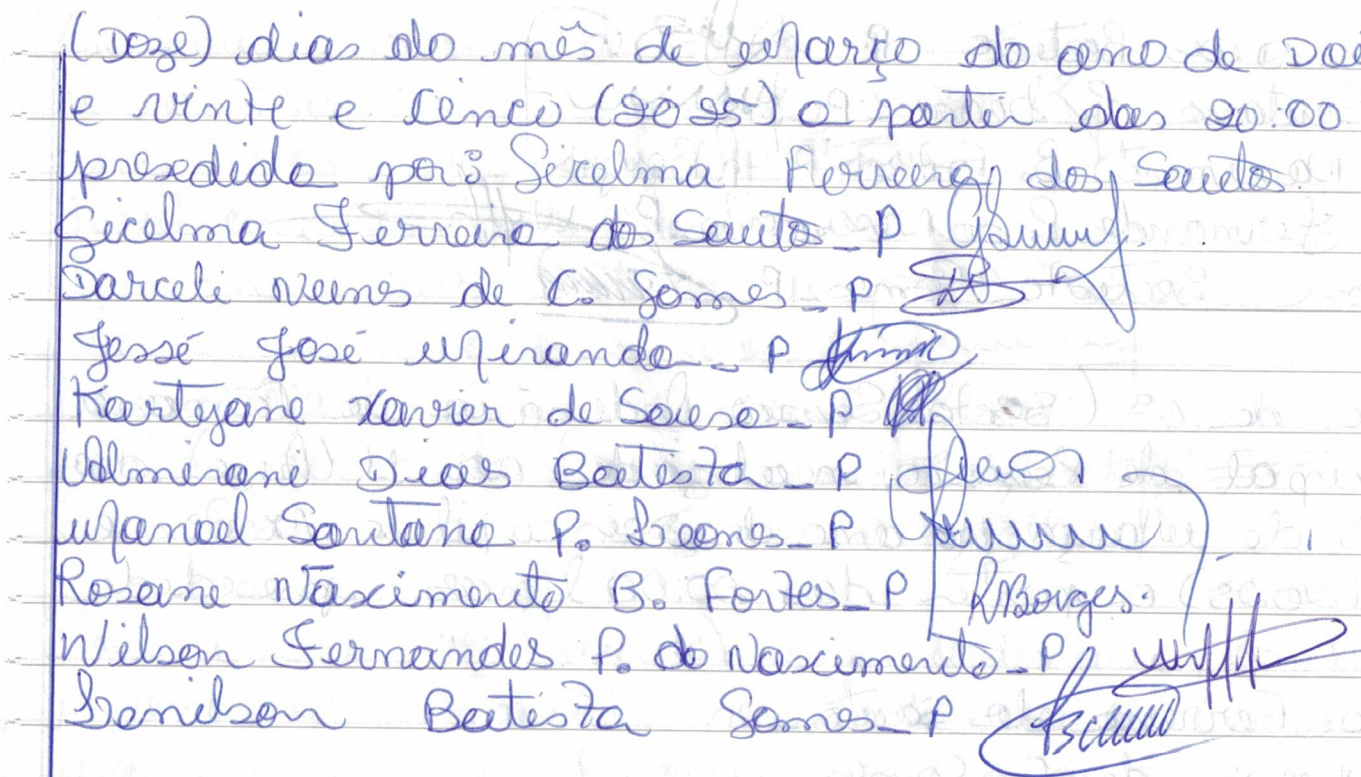 (Doze) dias do mês de Março do ano de Doi
e vinte e cinco (2025) a partir das 20:00
presedida por: Gicelma Ferreira dos Santos.
Gicelma Ferreira dos Santos - P
Darceli Nunes de C. Gomes - P
Jessé José Miranda - P
Kartejane Xavier de Sousa - P
Valmirane Dias Batista - P
Manoel Santana P. Leones - P
Rosane Nascimento B. Fortes - P RNBorges.
Wilson Fernandes P. do Nascimento - P
Denilson Batista Gomes - P